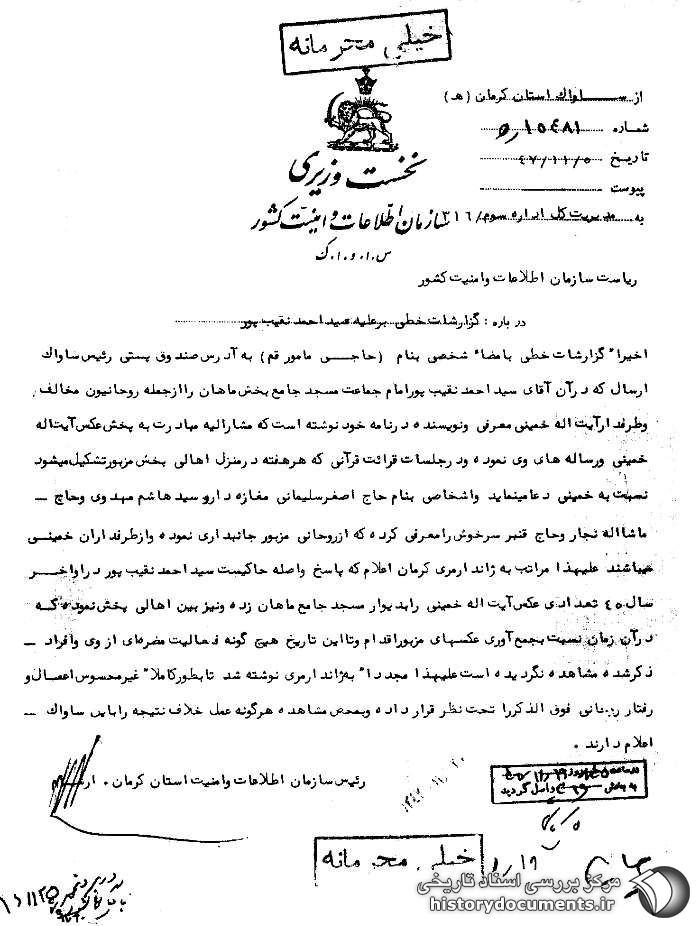 خیلی محرمانه
از ساواک استان کرمان (ه)
شماره ۱۵۴۸۱/ه
تاریخ ۴۷/۱۱/۵
پیوست
به مدیریت کل اداره سوم/۳۱۶
نخست وزیری
سازمان اطلاعات و امنیت کشور
س.ا.و.ا.ک
ریاست سازمان اطلاعات وامنیت کشور
درباره : گزارشات خطی برعلیه سید احمد نقیب پور
اخیرا" گزارشات خطی بامضاء شخصی بنام (حاجی مامور قم) به آدرس صندوق پستی رئیس ساواك
ارسال که درآن آقای سید احمد نقیب پورامام جماعت مسجد جامع بخش ماهان راازجمله روحانیون مخالف
وطرفدارآیت اله خمینی معرفی ونویسنده درنامه خود نوشته است که مشارالیه مبادرت به پخش عکس آیت اله
خمینی ورساله های وی نموده ودرجلسات قرائت قرآنی که هرهفته درمنزل اهالی بخش مزبورتشکیل میشود
نسبت به خمینی دعامینماید واشخاصی بنام حاج اصغرسلیمانی مغازه دارو سید هاشم مهدوی وحاج ــ
ماشااله نجار وحاج قنبر سرخوش رامعرفی کرده که ازروحانی مزبور جانبداری نموده وازطرفداران خمینی
میباشند علیهذا مراتب به ژاندارمری کرمان اعلام که پاسخ واصله حاکیست سید احمد نقیب پور دراواخر
سال ۴۵ تعدادی عکس آیت اله خمینی رابدیوار مسجد جامع ماهان زده ونیز بین اهالی پخش نموده که
درآن زمان نسبت بجمع آوری عکسهای مزبوراقدام وتااین تاریخ هیچ گونه فعالیت مضره ای از وی وافراد ــ
ذکرشده مشاهده نگردیده است علیهذا مجددا" به ژاندارمری نوشته شد تابطورکاملا" غیرمحسوس اعمال و
رفتار روحانی فوق الذکررا تحت نظر قرار داده وبمحض مشاهده هرگونه عمل خلاف نتیجه رابااین ساواك ــ
اعلام دارند .
رئیس سازمان اطلاعات وامنیت استان کرمان .
به بخش واصل گردید
خیلی محرمانه
مرکز بررسی اسناد تاریخی
historydocuments.ir